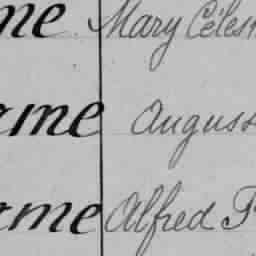 me Mary Celest
rme Auguss
rme Alfred F